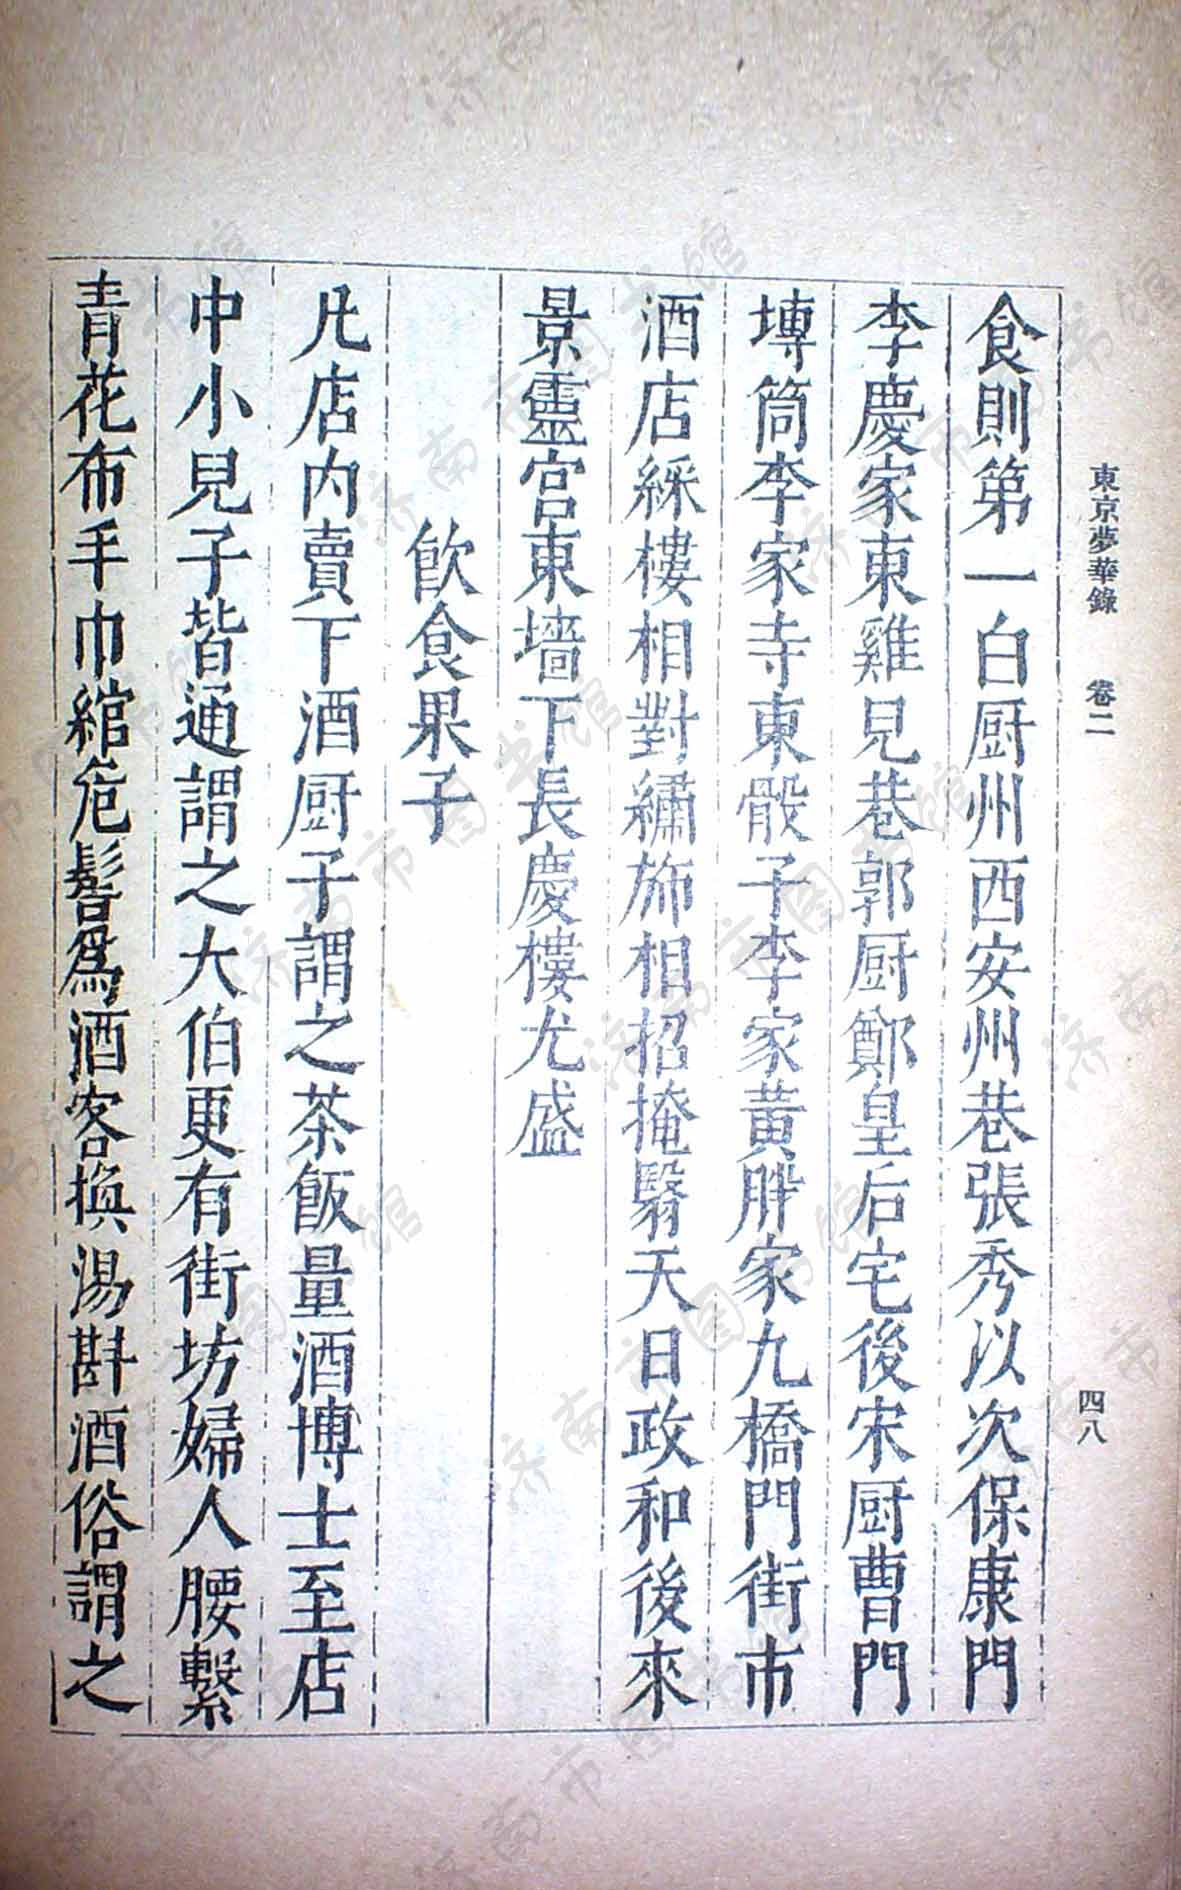 東京夢華錄　卷二
四八
食則第一白厨州西安州巷張秀以次保康門
李慶家東雞兒巷郭厨鄭皇后宅後宋厨曹門
塼筒李家寺東骰子李家黃胖家九橋門街市
酒店綵樓相對繡斾相招掩翳天日政和後來
景靈宮東墻下長慶樓尤盛
飲食果子
凡店内賣下酒厨子謂之茶飯量酒博士至店
中小兒子皆通謂之大伯更有街坊婦人腰繫
青花布手巾綰危髻爲酒客換湯斟酒俗謂之
济南市图书馆